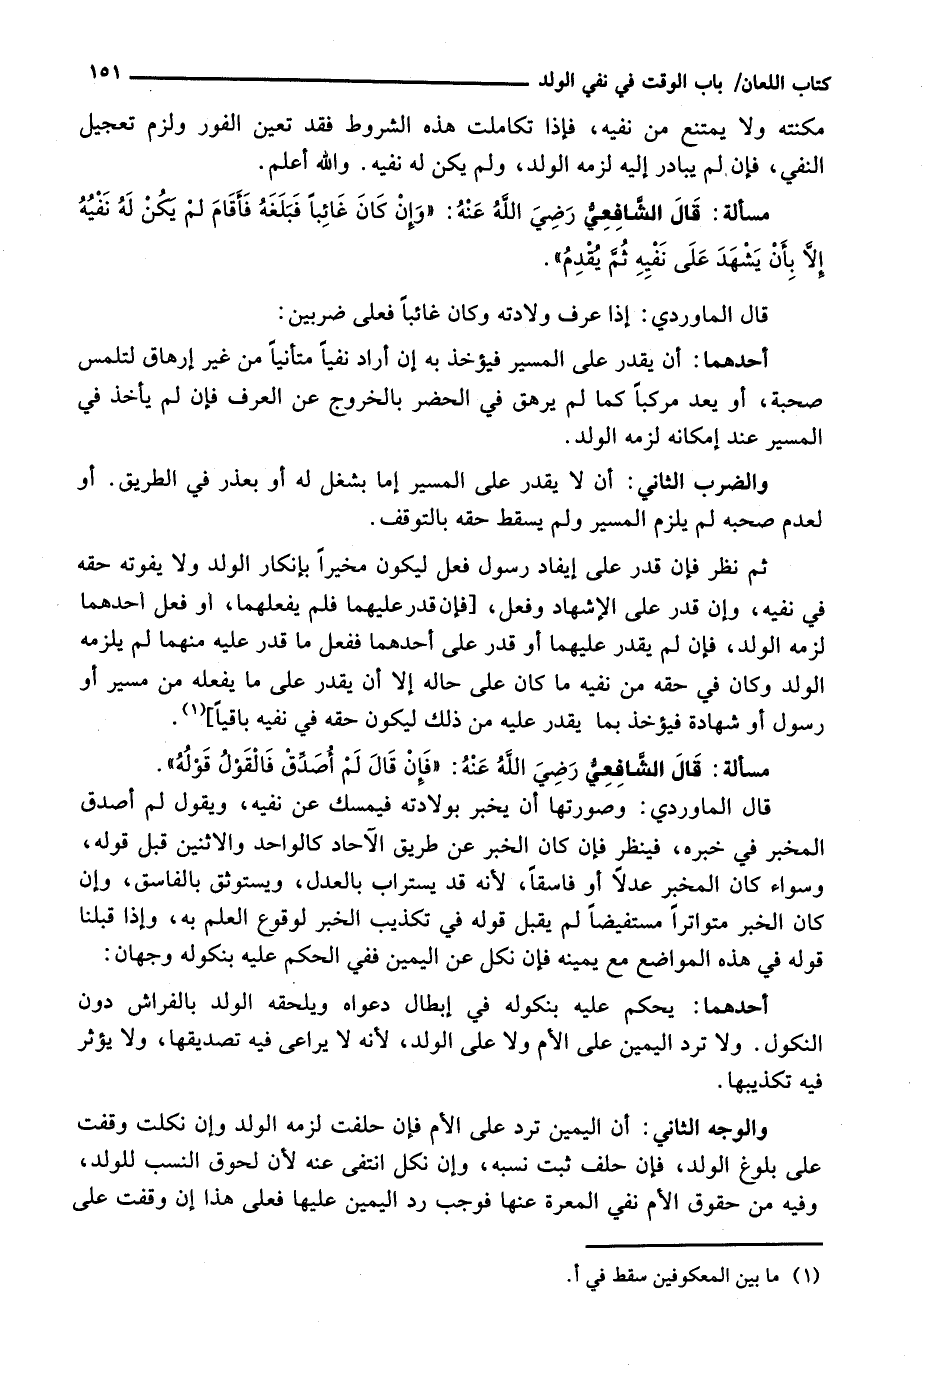 كتاب اللعان/ باب الوقت في نفي الولد ١٥١
مكنته ولا يمتنع من نفيه، فإذا تكاملت هذه الشروط فقد تعين الفور ولزم تعجيل
النفي، فإن لم يبادر إليه لزمه الولد، ولم يكن له نفيه. والله أعلم.
مسألة: قَالَ الشَّافِعِيُّ رَضِيَ اللَّهُ عَنْهُ: «وَإِنْ كَانَ غَائِباً فَبَلَغَهُ فَأَقَامَ لَمْ يَكُنْ لَهُ نَفْيُهُ
إِلاَّ بِأَنْ يَشْهَدَ عَلَى نَفْيِهِ ثُمَّ يُقْدِمُ».
قال الماوردي: إذا عرف ولادته وكان غائباً فعلى ضربين:
أحدهما: أن يقدر على المسير فيؤخذ به إن أراد نفياً متأنياً من غير إرهاق لتلمس
صحبة، أو يعد مركباً كما لم يرهق في الحضر بالخروج عن العرف فإن لم يأخذ في
المسير عند إمكانه لزمه الولد.
والضرب الثاني: أن لا يقدر على المسير إما بشغل له أو بعذر في الطريق. أو
لعدم صحبه لم يلزم المسير ولم يسقط حقه بالتوقف.
ثم نظر فإن قدر على إيفاد رسول فعل ليكون مخيراً بإنكار الولد ولا يفوته حقه
في نفيه، وإن قدر على الإشهاد وفعل، [فإن قدر عليهما فلم يفعلهما، أو فعل أحدهما
لزمه الولد، فإن لم يقدر عليهما أو قدر على أحدهما ففعل ما قدر عليه منهما لم يلزمه
الولد وكان في حقه من نفيه ما كان على حاله إلا أن يقدر على ما يفعله من مسير أو
رسول أو شهادة فيؤخذ بما يقدر عليه من ذلك ليكون حقه في نفيه باقياً](١).
مسألة: قَالَ الشَّافِعِيُّ رَضِيَ اللَّهُ عَنْهُ: «فَإِنْ قَالَ لَمْ أُصَدِّقْ فَالْقَوْلُ قَوْلُهُ».
قال الماوردي: وصورتها أن يخبر بولادته فيمسك عن نفيه، ويقول لم أصدق
المخبر في خبره، فينظر فإن كان الخبر عن طريق الآحاد كالواحد والاثنين قبل قوله،
وسواء كان المخبر عدلاً أو فاسقاً، لأنه قد يستراب بالعدل، ويستوثق بالفاسق، وإن
كان الخبر متواتراً مستفيضاً لم يقبل قوله في تكذيب الخبر لوقوع العلم به، وإذا قبلنا
قوله في هذه المواضع مع يمينه فإن نكل عن اليمين ففي الحكم عليه بنكوله وجهان:
أحدهما: يحكم عليه بنكوله في إبطال دعواه ويلحقه الولد بالفراش دون
النكول. ولا ترد اليمين على الأم ولا على الولد، لأنه لا يراعى فيه تصديقها، ولا يؤثر
فيه تكذيبها.
والوجه الثاني: أن اليمين ترد على الأم فإن حلفت لزمه الولد وإن نكلت وقفت
على بلوغ الولد، فإن حلف ثبت نسبه، وإن نكل انتفى عنه لأن لحوق النسب للولد،
وفيه من حقوق الأم نفي المعرة عنها فوجب رد اليمين عليها فعلى هذا إن وقفت على
(١) ما بين المعكوفين سقط في أ.